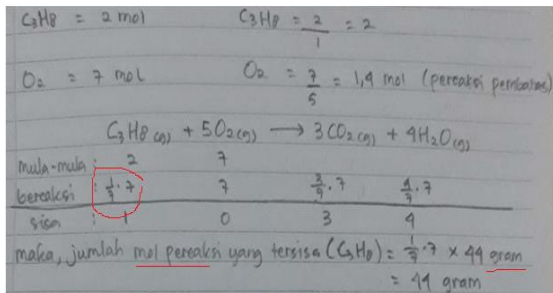 C3H8 = 2 mol C3H8 = 2/1 = 2
O2 = 7 mol O2 = 7/5 = 1,4 mol (pereaksi pembatas)
C3H8(g) + 5O2(g) → 3CO2(g) + 4H2O(g)
mula-mula : 2 7
bereaksi : 1/7 . 7 7 3/7 . 7 4/7 . 7
sisa : 1 0 3 4
maka, jumlah mol pereaksi yang tersisa (C3H8) = 1/7 . 7 x 44 gram
= 44 gram